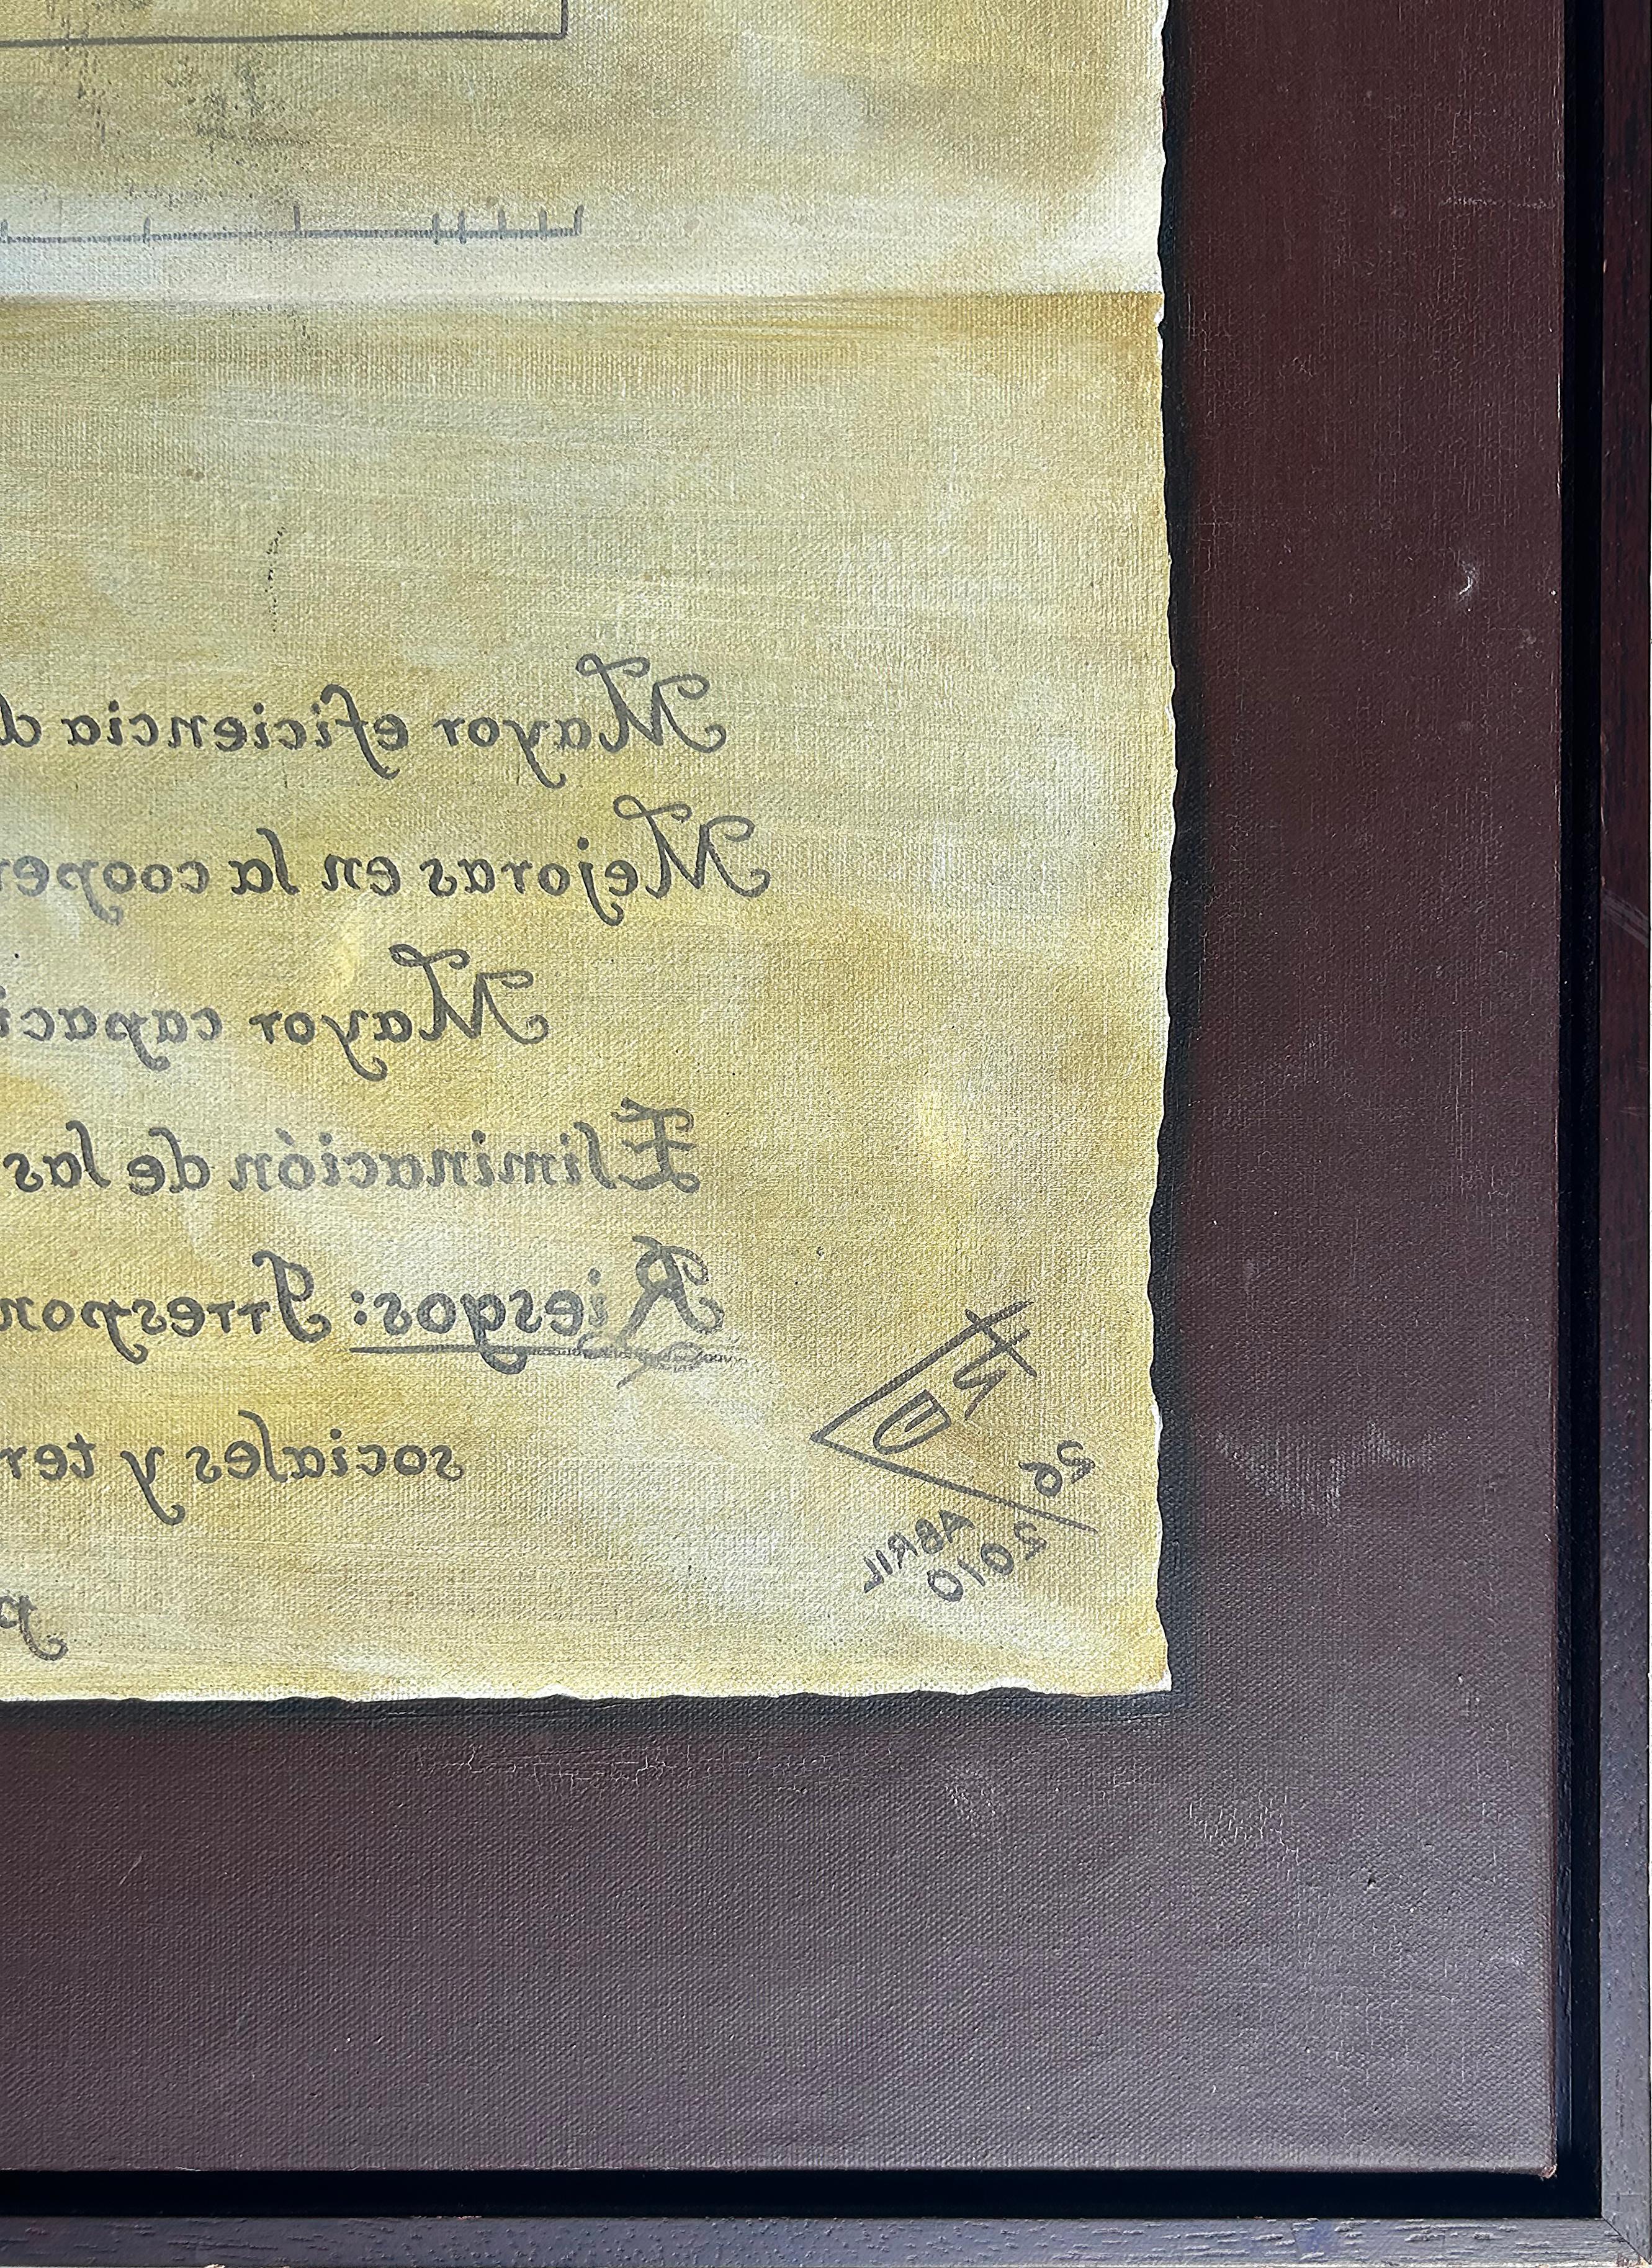 Mayor eficiencia d
Mejoras en la cooper
Mayor capaci
Eliminación de las
Riesgos: Irrespon
sociales y ter
p
29
ABRIL
2010